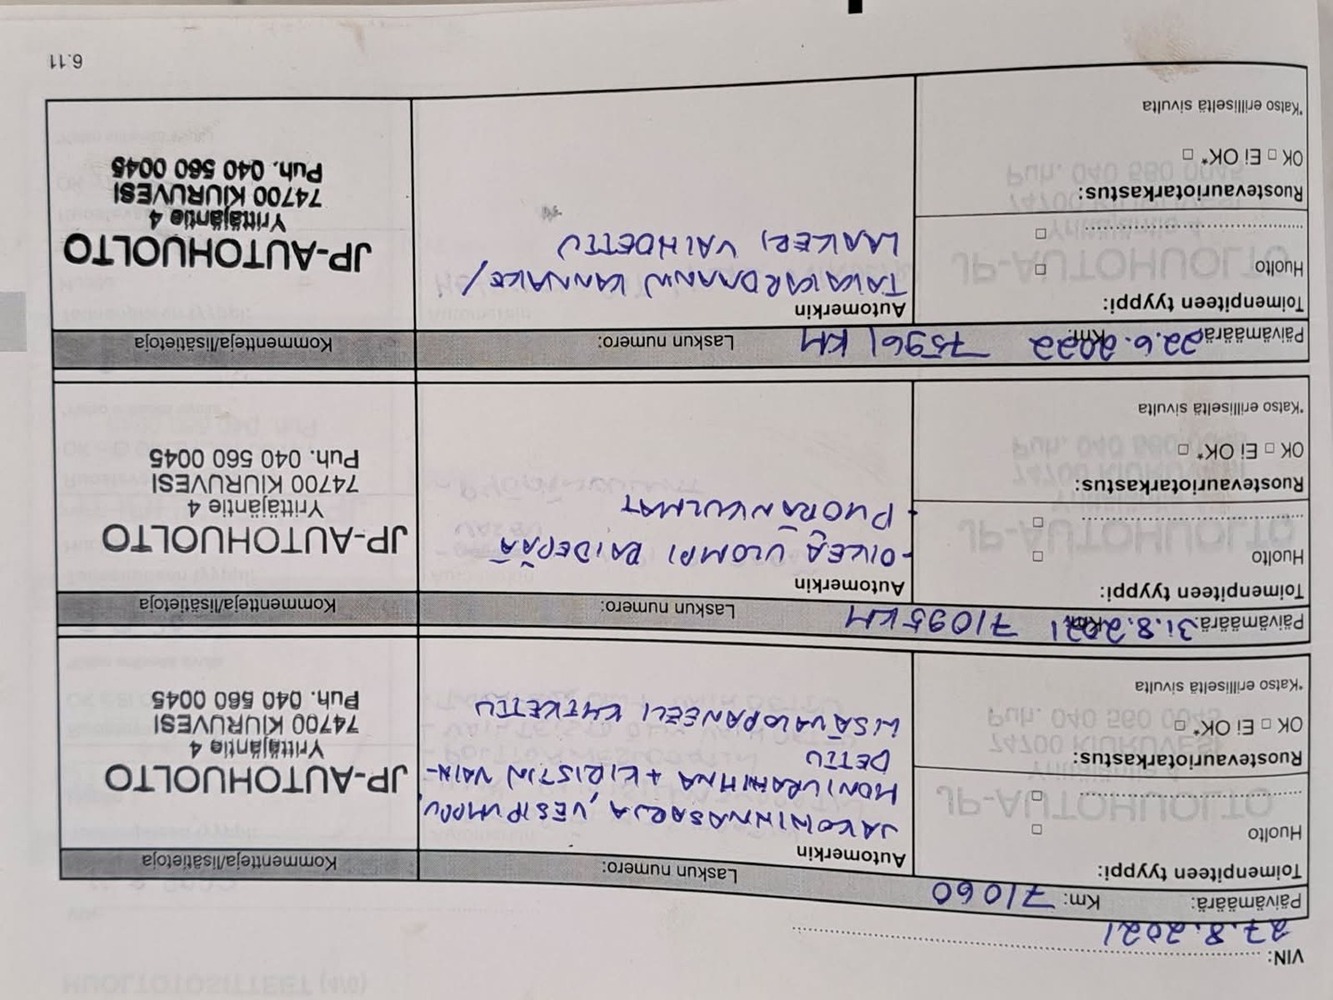 VIN:
27.8.2021
Päivämäärä: Km: 71060
Toimenpiteen tyyppi:
Huolto □
□
Ruostevauriotarkastus:
OK □ Ei OK* □
*Katso erilliseltä sivulta
Laskun numero:
Automerkin
JAKOHIHNASARJA, VESIPUMPPU,
MONIURAHIHNA + KIRISTIN VAIH-
DETTU
LISÄVALOPANEELI KYTKETTU
Kommentteja/lisätietoja
JP-AUTOHUOLTO
Yrittäjäntie 4
74700 KIURUVESI
Puh. 040 560 0045
Päivämäärä: 31.8.2021 Km: 71095 KM
Toimenpiteen tyyppi:
Huolto □
□
Ruostevauriotarkastus:
OK □ Ei OK* □
*Katso erilliseltä sivulta
Laskun numero:
Automerkin
- OIKEA ULOMPI RAIDEPÄÄ
- PYÖRÄNKULMAT
Kommentteja/lisätietoja
JP-AUTOHUOLTO
Yrittäjäntie 4
74700 KIURUVESI
Puh. 040 560 0045
Päivämäärä: 22.6.2022 Km: 75961 KM
Toimenpiteen tyyppi:
Huolto □
□
Ruostevauriotarkastus:
OK □ Ei OK* □
*Katso erilliseltä sivulta
Laskun numero:
Automerkin
TAKAKARDAANIN KANNAKE/
LAAKERI VAIHDETTU
Kommentteja/lisätietoja
JP-AUTOHUOLTO
Yrittäjäntie 4
74700 KIURUVESI
Puh. 040 560 0045
6.11